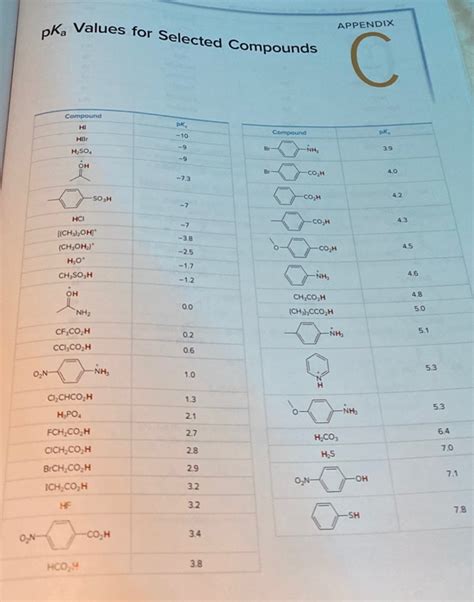 APPENDIX
C
pKa Values for Selected Compounds
Compound pKa
HI −10
HBr −9
H₂SO₄ −9
⁺OH −7.3
SO₃H −7
HCl −7
[(CH₃)₂OH]⁺ −3.8
(CH₃OH₂)⁺ −2.5
H₃O⁺ −1.7
CH₃SO₃H −1.2
⁺OH
NH₂ 0.0
CF₃CO₂H 0.2
CCl₃CO₂H 0.6
O₂N ⁺NH₃ 1.0
Cl₂CHCO₂H 1.3
H₃PO₄ 2.1
FCH₂CO₂H 2.7
ClCH₂CO₂H 2.8
BrCH₂CO₂H 2.9
ICH₂CO₂H 3.2
HF 3.2
O₂N CO₂H 3.4
HCO₂H 3.8
Compound pKa
Br ⁺NH₃ 3.9
Br CO₂H 4.0
CO₂H 4.2
CO₂H 4.3
O CO₂H 4.5
⁺NH₃ 4.6
CH₃CO₂H 4.8
(CH₃)₃CCO₂H 5.0
⁺NH₃ 5.1
N⁺
H 5.3
O ⁺NH₃ 5.3
H₂CO₃ 6.4
H₂S 7.0
O₂N OH 7.1
SH 7.8